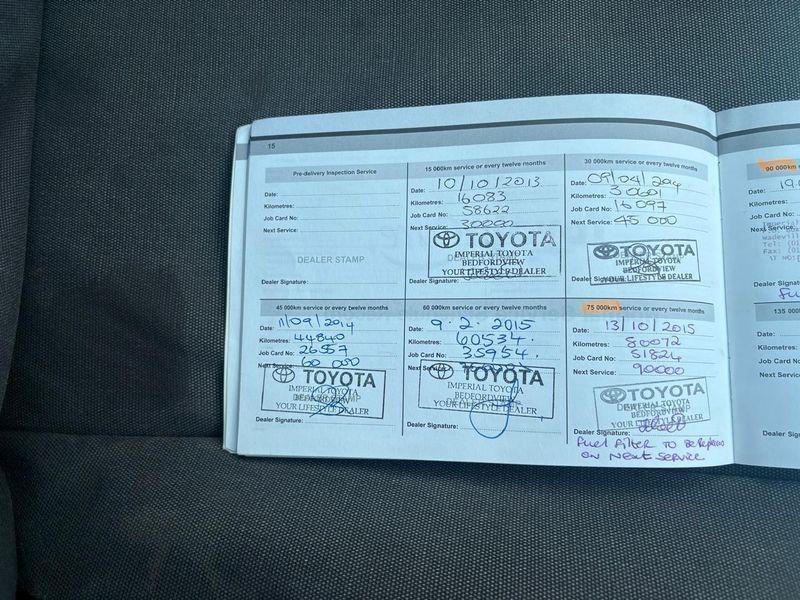 15
Pre-delivery Inspection Service
Date:
Kilometres:
Job Card No:
Next Service:
DEALER STAMP
Dealer Signature:
15 000km service or every twelve months
Date: 10/10/2013
Kilometres: 16083
Job Card No: 58622
Next Service: 30000
TOYOTA
IMPERIAL TOYOTA
BEDFORDVIEW
YOUR LIFESTYLE DEALER
Dealer Signature:
30 000km service or every twelve months
Date: 09/04/2014
Kilometres: 30601
Job Card No: 16097
Next Service: 45 000
TOYOTA
IMPERIAL TOYOTA
BEDFORDVIEW
YOUR LIFESTYLE DEALER
Dealer Signature:
45 000km service or every twelve months
Date: 11/09/2014
Kilometres: 44840
Job Card No: 26557
Next Service: 60 000
TOYOTA
IMPERIAL TOYOTA
BEDFORDVIEW
YOUR LIFESTYLE DEALER
Dealer Signature:
60 000km service or every twelve months
Date: 9.2.2015
Kilometres: 60534.
Job Card No: 35954.
Next Service:
TOYOTA
IMPERIAL TOYOTA
BEDFORDVIEW
YOUR LIFESTYLE DEALER
Dealer Signature:
75 000km service or every twelve months
Date: 13/10/2015
Kilometres: 80072
Job Card No: 51824
Next Service: 90000
TOYOTA
IMPERIAL TOYOTA
BEDFORDVIEW
YOUR LIFESTYLE DEALER
Dealer Signature:
Fuel Filter To Be
ON Next Service
90 000km
Date: 19.
Kilometres:
Job Card No:
Next Service
Tel:
Fax:
Dealer
135 000
Date:
Kilometres:
Job Card No:
Next Service
Dealer Signat